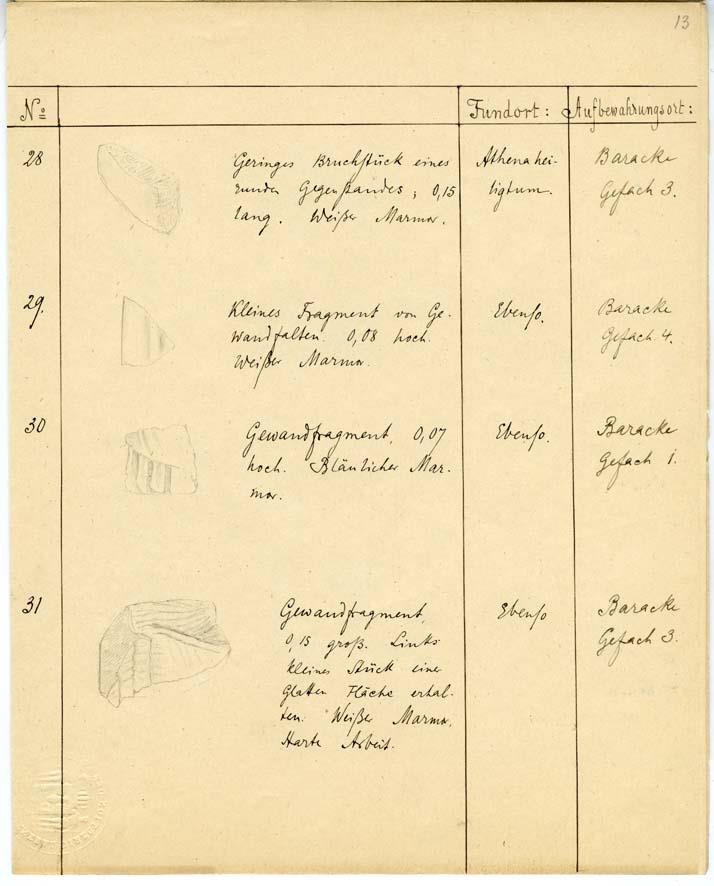 13
No Fundort: Aufbewahrungsort:
28 Geringes Bruchstück eines Athenahei- Baracke
runden Gegenstandes; 0,15 ligtum. Gefach 3.
lang. Weißer Marmor.
29. Kleines Fragment von Ge- Ebenso. Baracke
wandfalten. 0,08 hoch. Gefach 4.
Weißer Marmor.
30 Gewandfragment, 0,07 Ebenso. Baracke
hoch. Bläulicher Mar- Gefach 1.
mor.
31 Gewandfragment, Ebenso Baracke
0,15 groß. Links Gefach 3.
kleines Stück einer
glatten Fläche erhal-
ten. Weißer Marmor.
Harte Arbeit.